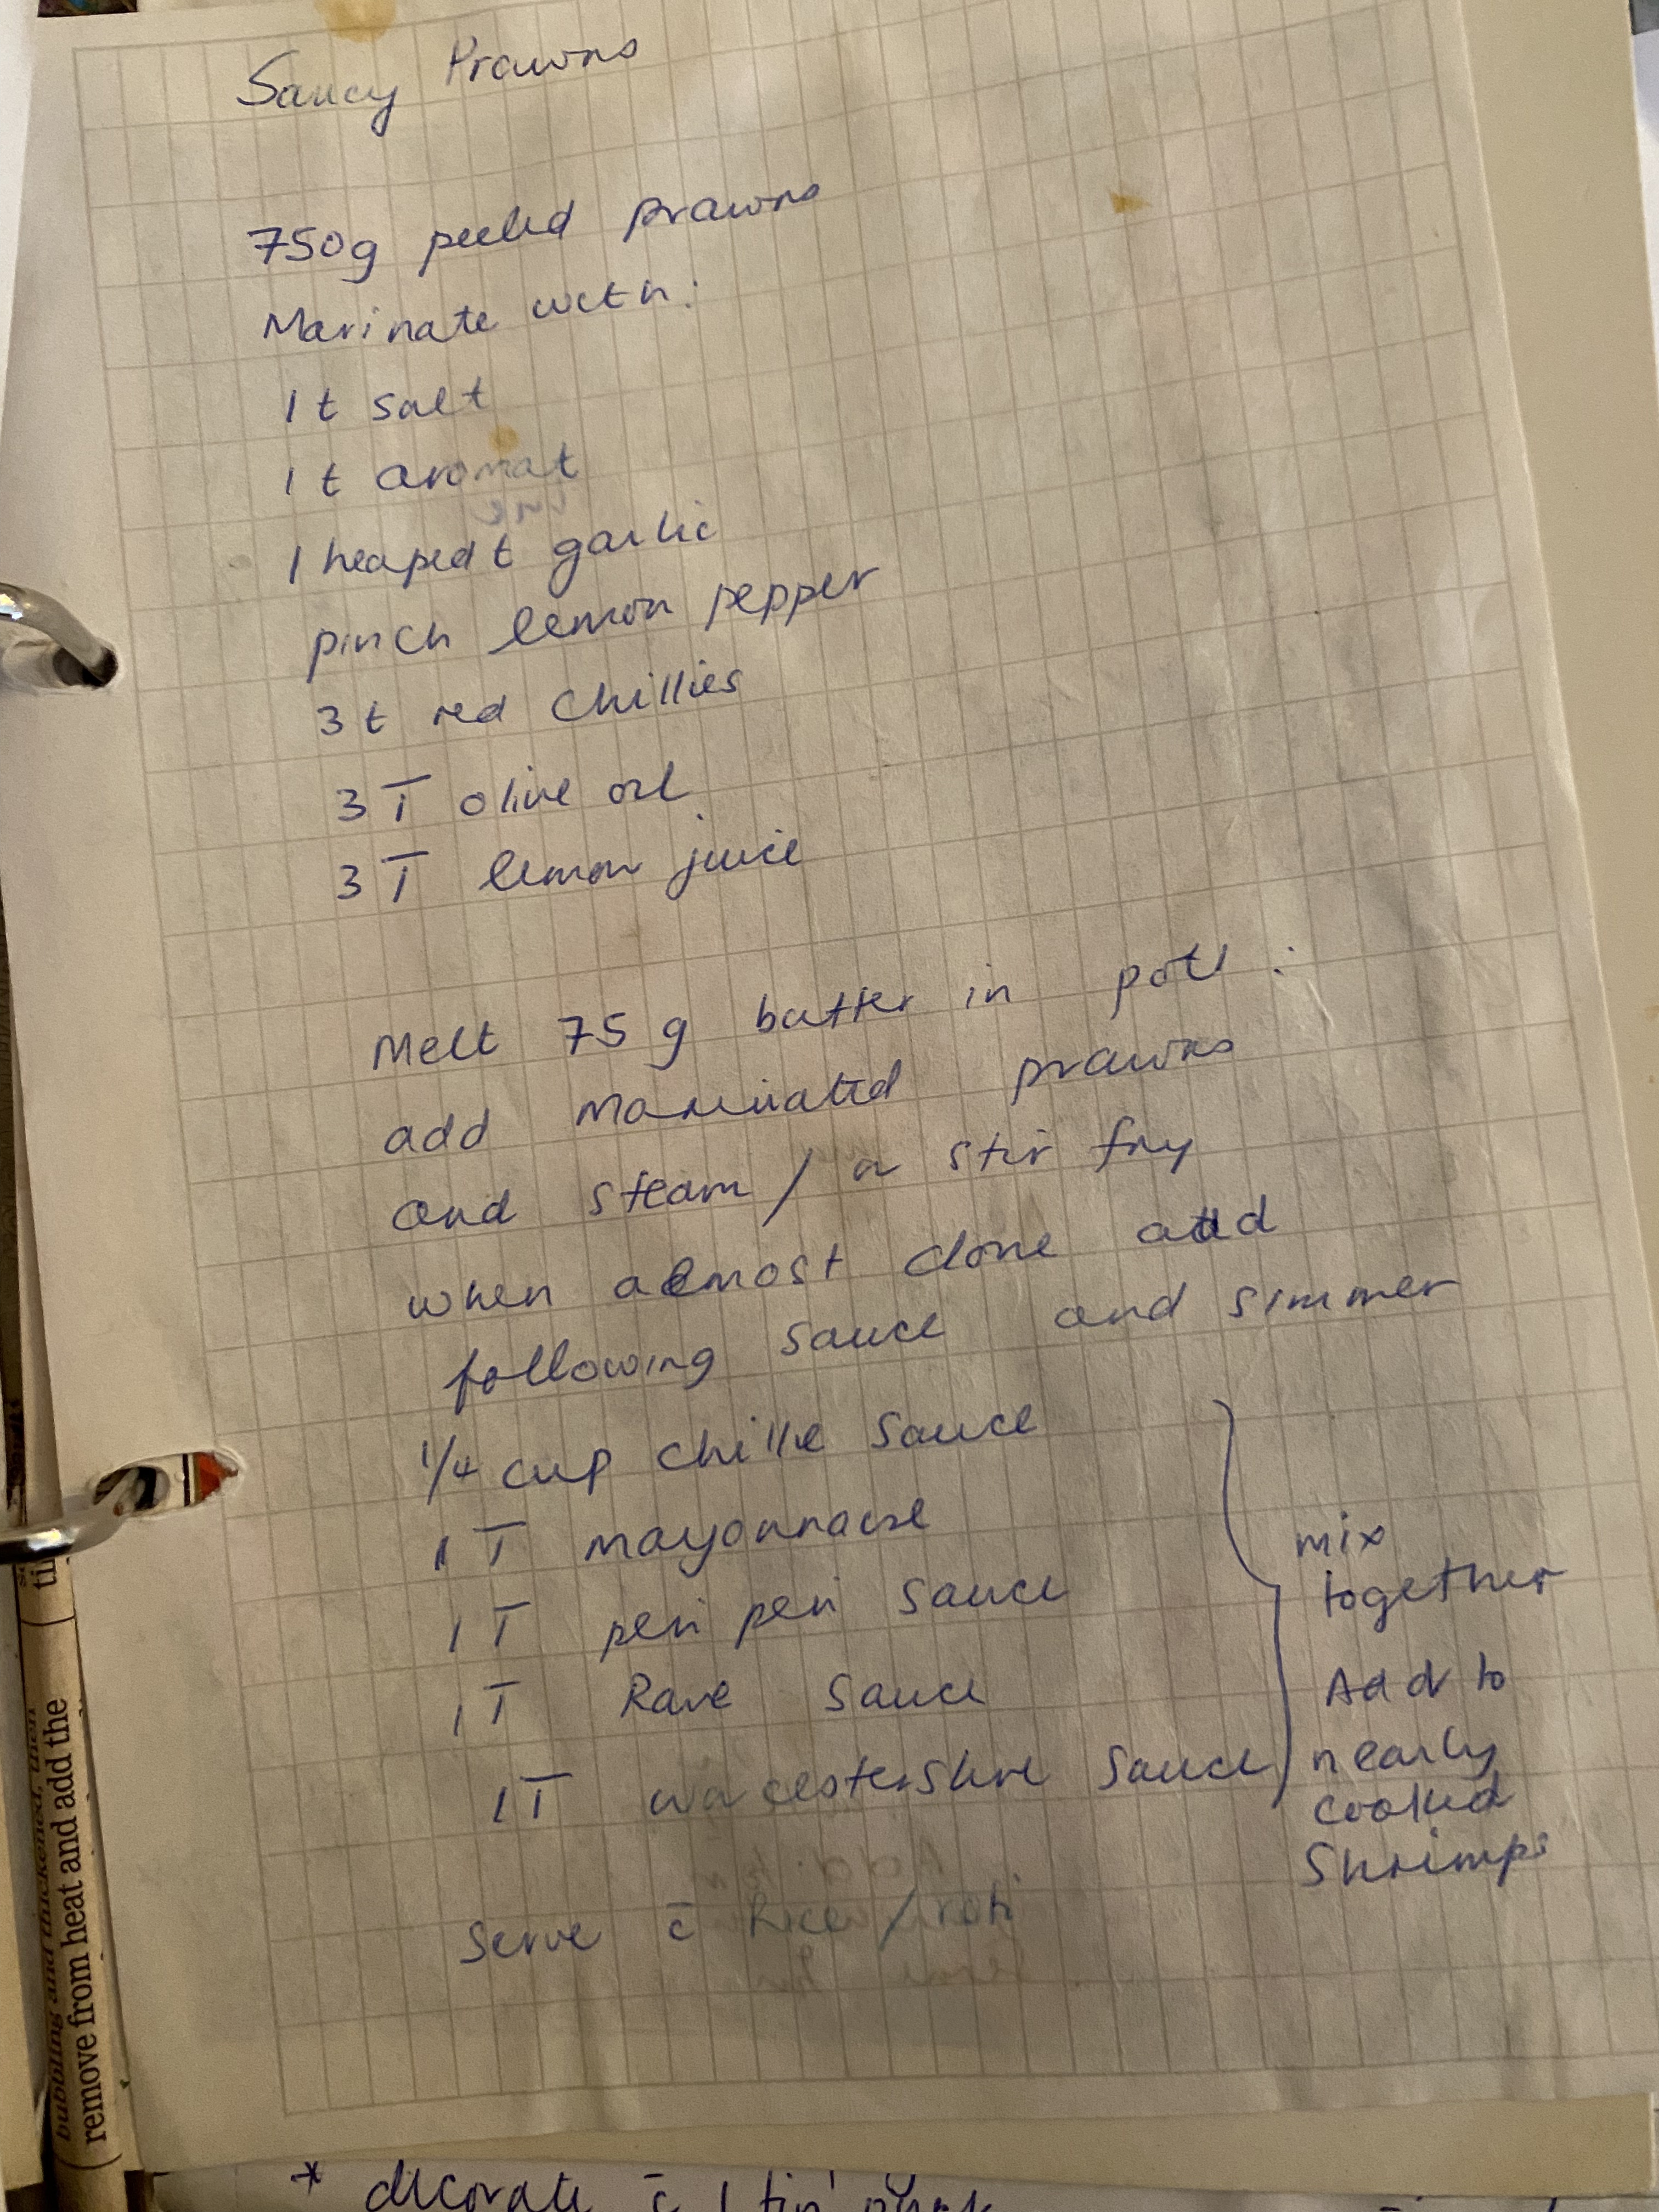 Saucy Prawns
750g peeled prawns
Marinate with:
1 t salt
1 t aromat
1 heaped t garlic
pinch lemon pepper
3 t red chillies
3 T olive oil
3 T lemon juice
Melt 75 g butter in pot :
add marinated prawns
and steam / or stir fry
when almost done add
following sauce and simmer
1/4 cup chillie sauce
1 T mayonnaise
1 T peri peri sauce
1 T Rave sauce
1T worcestershire sauce
mix
together
Add to
nearly
cooked
Shrimps
Serve c̄ Rice / roti
* decorate c̄ 1 tin
bubbling and thickened, then
remove from heat and add the